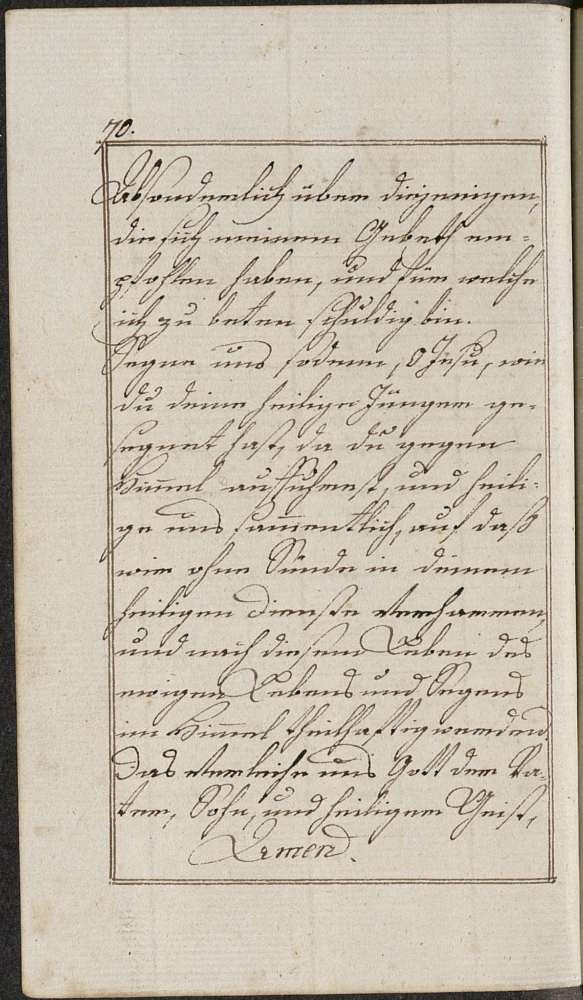 70.
Absonderlich über diejenigen,
die sich meinem Gebeth em-
pfohlen haben, und für welche
ich zu beten schuldig bin.
Segne uns sodenn, O Jesu, wie
du deine heilige Jünger ge-
segnet hast, da du gegen
Himel auffuhrest, und heili-
ge uns samentlich, auf daß
wir ohne Sünde in deinem
heiligen Dienste verharren,
und nach diesem Leben des
ewigen Lebens und Segens
im Himel theilhaftig werden.
Das verleihe uns Gott der Va-
ter, Sohn, und heiligen Geist,
Amen.